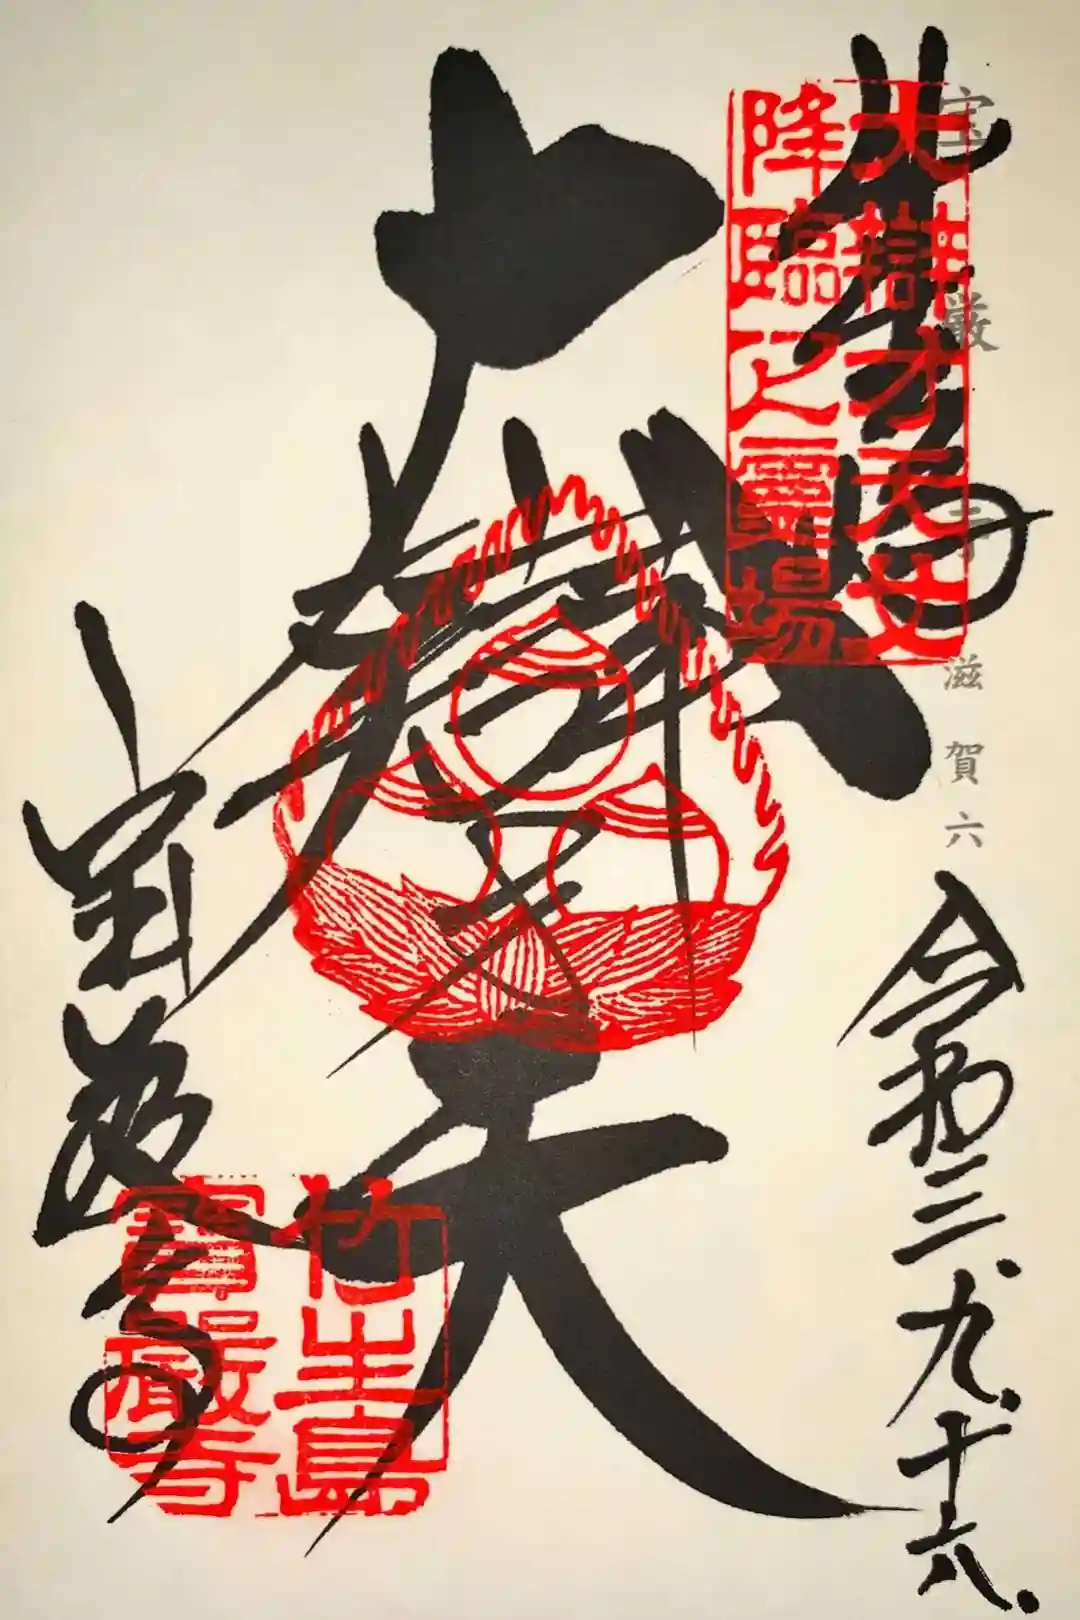 宝厳寺 滋賀六
竹生島
大辯才天女
降臨之靈場
大辯才天
令和三、九、十六、
宝厳寺
竹生島
寶嚴寺